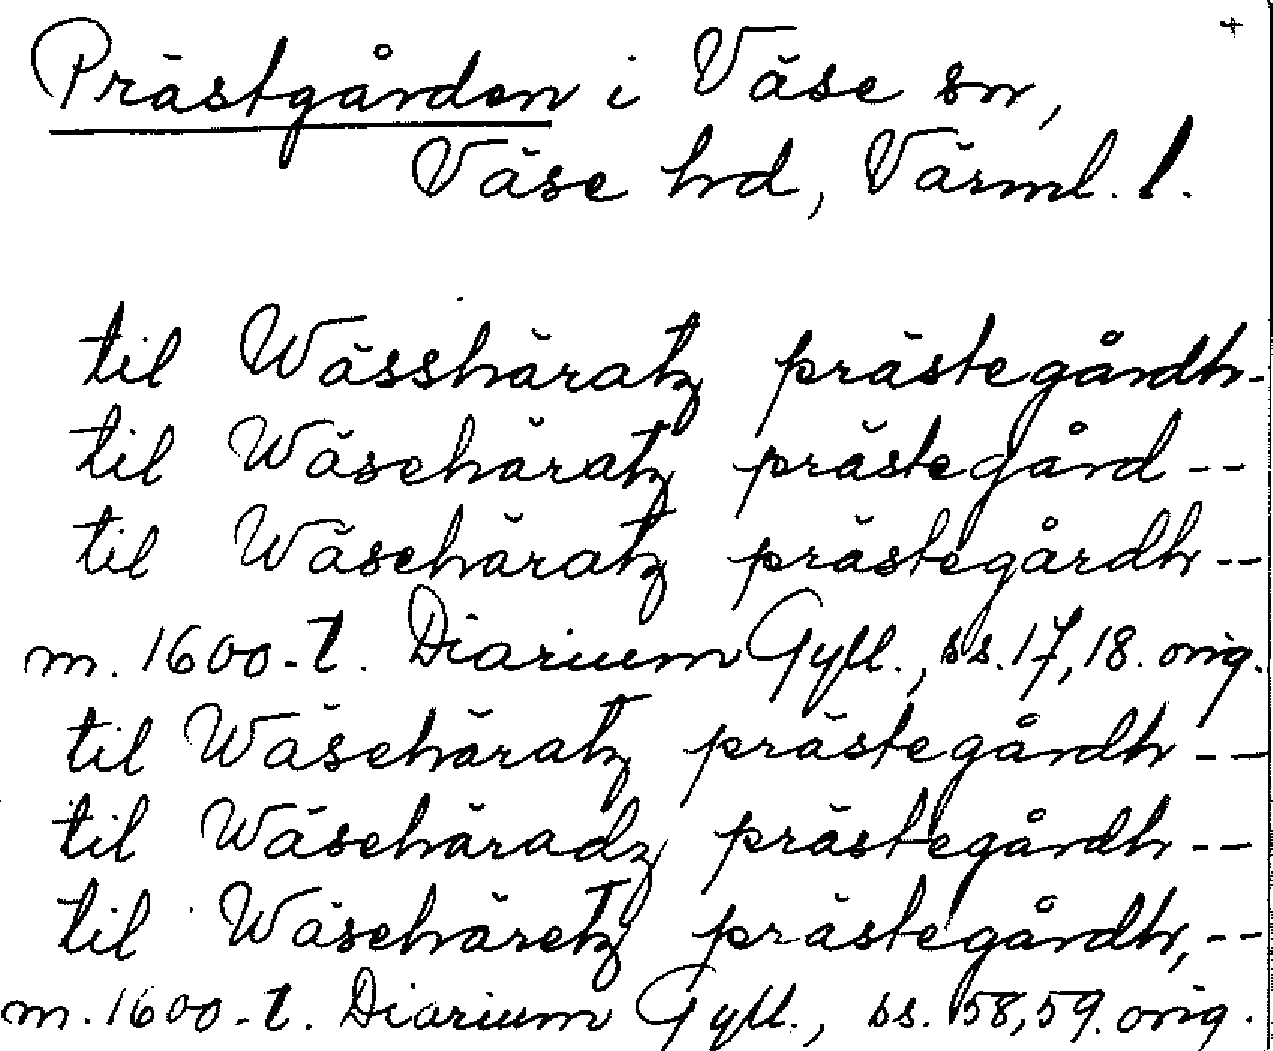 +
Prästgården i Väse sn,
Väse hd, Värml. l.
til Wässhäratz prästegårdh-
til Wäsehäratz prästegård --
til Wäsehäratz prästegårdh --
m. 1600-t. Diarium Gyll., ss. 17, 18. orig.
til Wäsehäratz prästegårdh --
til Wäsehäradz prästegårdh --
til Wäsehäretz prästegårdh, --
m. 1600-t. Diarium Gyll., ss. 58, 59. orig.